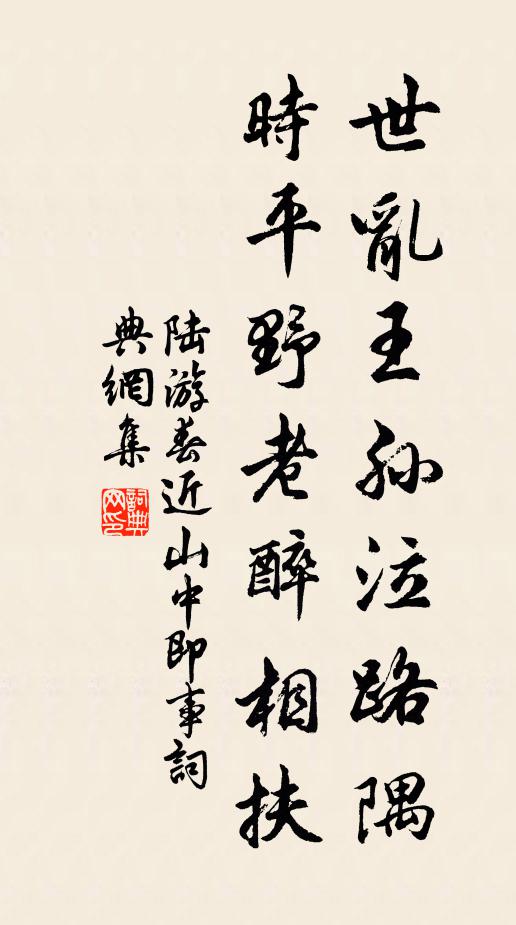 世亂王孫泣路隅
時平野老醉相扶
陆游春近山中即事詞
典網集
詞典網印